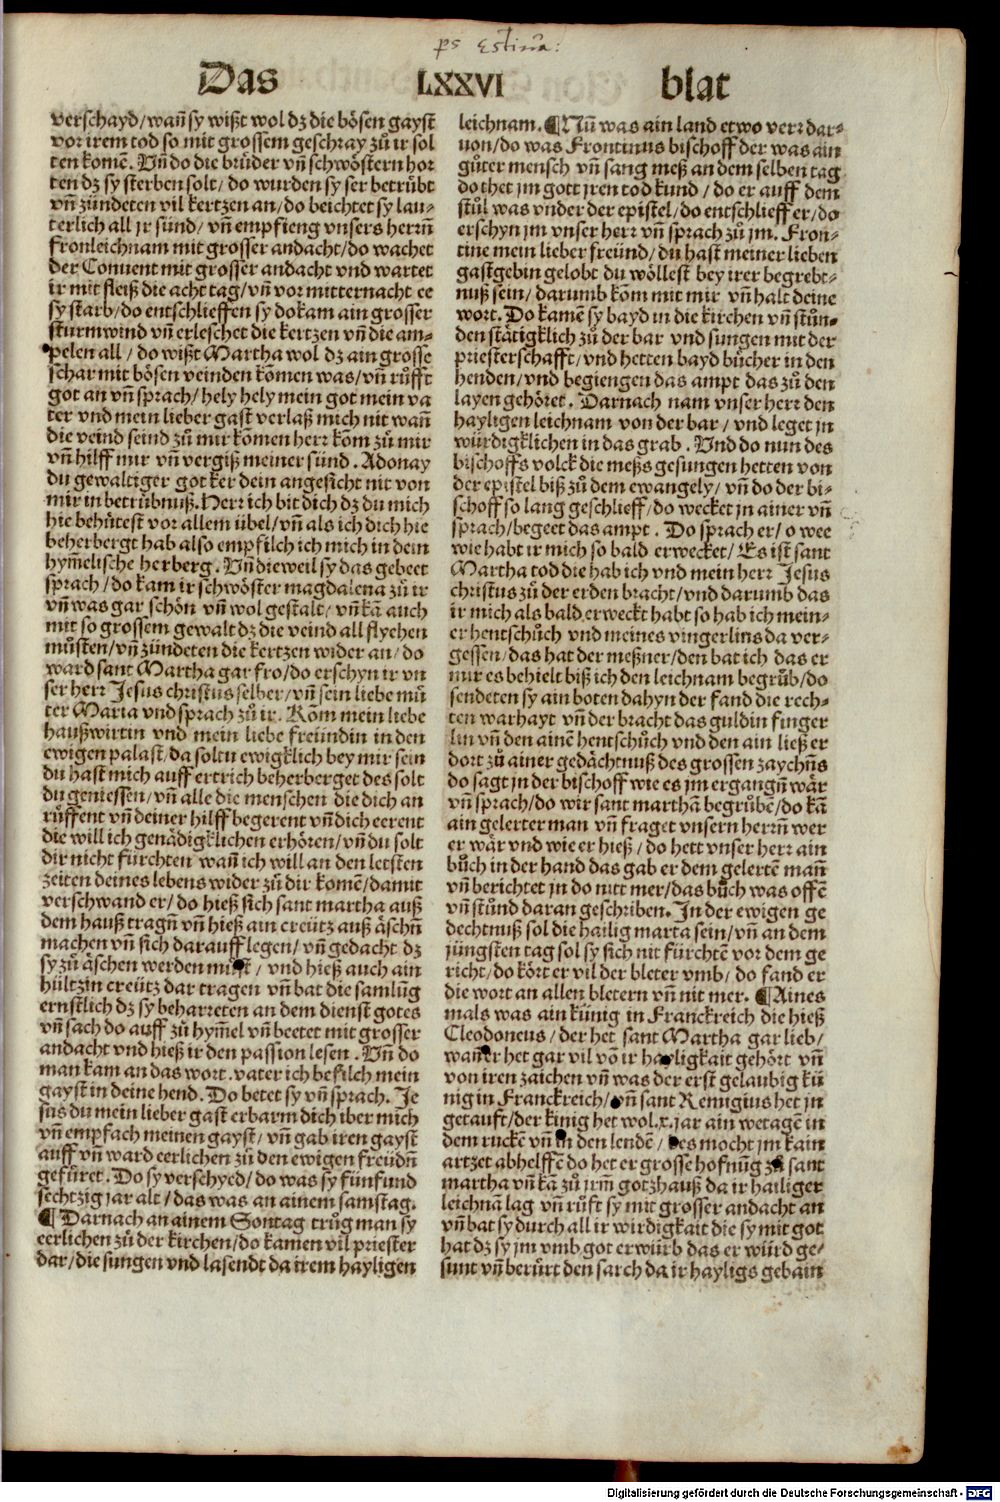 ps Estina:
Das LXXVI blat
verschayd/wañ sy wißt wol dz die bösen gayst
vor irem tod so mit grossem geschray zů ir sol
ten komē. Vñ do die brüder vñ schwöstern hor
ten dz sy sterben solt/do wurden sy ser betrübt
vñ zündeten vil kertzen an/do beichtet sy lau-
terlich all jr sünd/vñ empfieng vnsers herrñ
fronleichnam mit grosser andacht/do wachet
der Conuent mit grosser andacht vnd wartet
ir mit fleiß die acht tag/vñ vor mitternacht ee
sy starb/do entschlieffen sy do kam ain grosser
sturmwind vñ erleschet die kertzen vñ die am-
pelen all/do wißt Martha wol dz ain grosse
schar mit bösen veinden kōmen was/vñ růfft
got an vñ sprach/hely hely mein got mein va
ter vnd mein lieber gast verlaß mich nit wañ
die veind seind zů mir kōmen herr kōm zů mir
vñ hilff mir vñ vergiß meiner sünd. Adonay
du gewaltiger got ker dein angesicht nit von
mir in betrübnuß. Herr ich bit dich dz du mich
hie behütest vor allem übel/vñ als ich dich hie
beherbergt hab also empfilch ich mich in dein
hym̄elische herberg. Vñ dieweil sy das gebeet
sprach/do kam ir schwöster magdalena zů ir
vñ was gar schön vñ wol gestalt/vñ kā auch
mit so grossem gewalt dz die veind all flyehen
můsten/vñ zündeten die kertzen wider an/do
ward sant Martha gar fro/do erschyn ir vn
ser herr Jesus christus selber/vñ sein liebe mů
ter Maria vnd sprach zů ir. Kōm mein liebe
haußwirtin vnd mein liebe freündin in den
ewigen palast/da soltu ewigklich bey mir sein
du hast mich auff ertrich beherberget des solt
du geniessen/vñ alle die menschen die dich an
rüffent vñ deiner hilff begerent vñ dich eerent
die will ich genädigklichen erhören/vñ du solt
dir nicht fürchten wañ ich will an den letsten
zeiten deines lebens wider zů dir komē/damit
verschwand er/do hieß sich sant martha auß
dem hauß tragñ vñ hieß ain creütz auß äschñ
machen vñ sich darauff legen/vñ gedacht dz
sy zů äschen werden můst/vnd hieß auch ain
hültzin creütz dar tragen vñ bat die samlūg
ernstlich dz sy beharreten an dem dienst gotes
vñ sach do auff zů hym̄el vñ beetet mit grosser
andacht vnd hieß ir den passion lesen. Vñ do
man kam an das wort.vater ich befilch mein
gayst in deine hend. Do betet sy vñ sprach. Je
sus du mein lieber gast erbarm dich iber mich
vñ empfach meinen gayst/vñ gab iren gayst
auff vñ ward eerlichen zů den ewigen freüdñ
gefüret. Do sy verschyed/do was sy fünfund
sechtzig jar alt/das was an ainem samstag.
¶ Darnach an ainem Sontag trůg man sy
eerlichen zů der kirchen/do kamen vil priester
dar/die sungen vnd lasendt da irem hayligen
leichnam. ¶ Nun was ain land etwo verr dar-
uon/do was Frontinus bischoff der was ain
gůter mensch vñ sang meß an dem selben tag
do thet jm gott jren tod kund/do er auff dem
stůl was vnder der epistel/do entschlieff er/do
erschyn jm vnser herr vñ sprach zů jm. Fron-
tine mein lieber freünd/du hast meiner lieben
gastgebin gelobt du wöllest bey irer begrebt-
nuß sein/darumb kōm mit mir vñ halt deine
wort. Do kamē sy bayd in die kirchen vñ stůn-
den stätigklich zů der bar vnd sungen mit der
priesterschafft/vnd hetten bayd bücher in den
henden/vnd begiengen das ampt das zů den
layen gehöret. Darnach nam vnser herr den
hayligen leichnam von der bar/vnd leget jn
würdigklichen in das grab. Vnd do nun des
bischoffs volck die meßs gesungen hetten von
der epistel biß zů dem ewangely/vñ do der bi-
schoff so lang geschlieff/do wecket jn ainer vñ
sprach/begeet das ampt. Do sprach er/o wee
wie habt ir mich so bald erwecket/Es ist sant
Martha tod die hab ich vnd mein herr Jesus
christus zů der erden bracht/vnd darumb das
ir mich als bald erweckt habt so hab ich mein-
er hentschůch vnd meines vingerlins da ver-
gessen/das hat der meßner/den bat ich das er
mir es behielt biß ich den leichnam begrüb/do
sendeten sy ain boten dahyn der fand die rech-
ten warhayt vñ der bracht das guldin finger
lin vñ den ainē hentschůch vnd den ain ließ er
dort zů ainer gedächtnuß des grossen zaychñs
do sagt jn der bischoff wie es jm ergangñ wär
vñ sprach/do wir sant marthā begrůbē/do kā
ain gelerter man vñ fraget vnsern herrñ wer
er wär vnd wie er hieß/do hett vnser herr ain
bůch in der hand das gab er dem gelertē mañ
vñ berichtet jn do nitt mer/das bůch was offē
vñ stůnd daran geschriben. In der ewigen ge
dechtnuß sol die hailig marta sein/vñ an dem
jüngsten tag sol sy sich nit fürchtē vor dem ge
richt/do kört er vil der bleter vmb/do fand er
die wort an allen bletern vñ nit mer. ¶ Aines
mals was ain künig in Franckreich die hieß
Cleodoneus/der het sant Martha gar lieb/
wañ er het gar vil vō ir hayligkait gehört vñ
von iren zaichen vñ was der erst gelaubig kü
nig in Franckreich/vñ sant Remigius het jn
getauft/der kinig het wol.x.jar ain wetagē in
dem ruckē vñ in den lendē/des mocht jm kain
artzet abhelffē do het er grosse hofnūg zů sant
martha vñ kā zů jrm̄ gotzhauß da ir hailiger
leichnā lag vñ růft sy mit grosser andacht an
vñ bat sy durch all ir wirdigkait die sy mit got
hat dz sy jm vmb got erwürb das er würd ge-
sunt vñ berürt den sarch da ir hayligs gebain
Digitalisierung gefördert durch die Deutsche Forschungsgemeinschaft - DFG